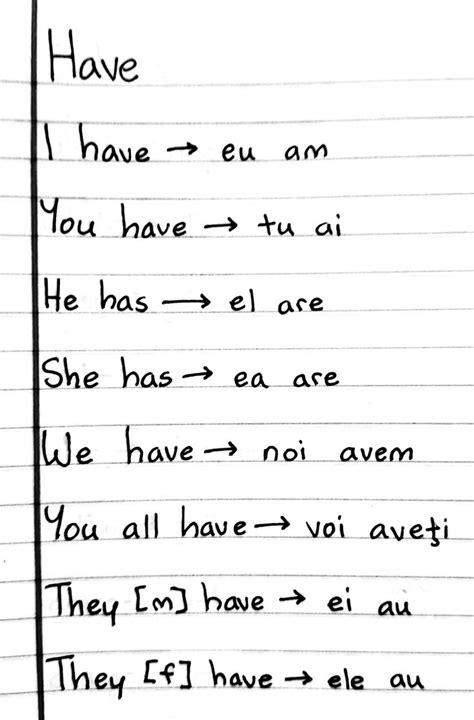 Have
I have → eu am
You have → tu ai
He has → el are
She has → ea are
We have → noi avem
You all have → voi aveţi
They [m] have → ei au
They [f] have → ele au